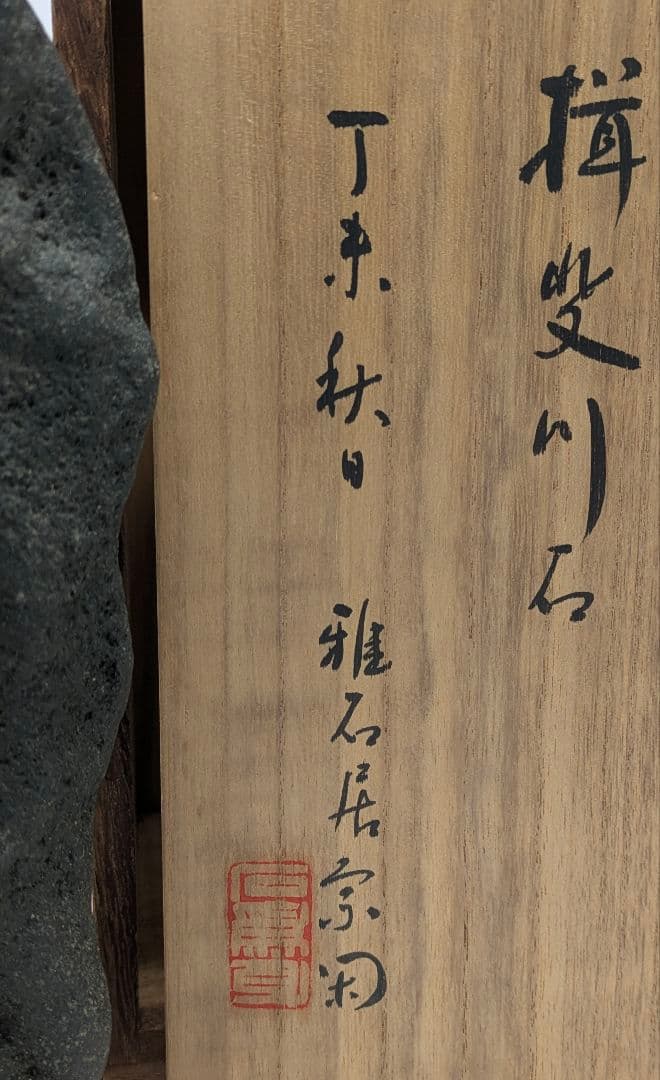 揖斐川石
丁未秋日 雅石居宗閑